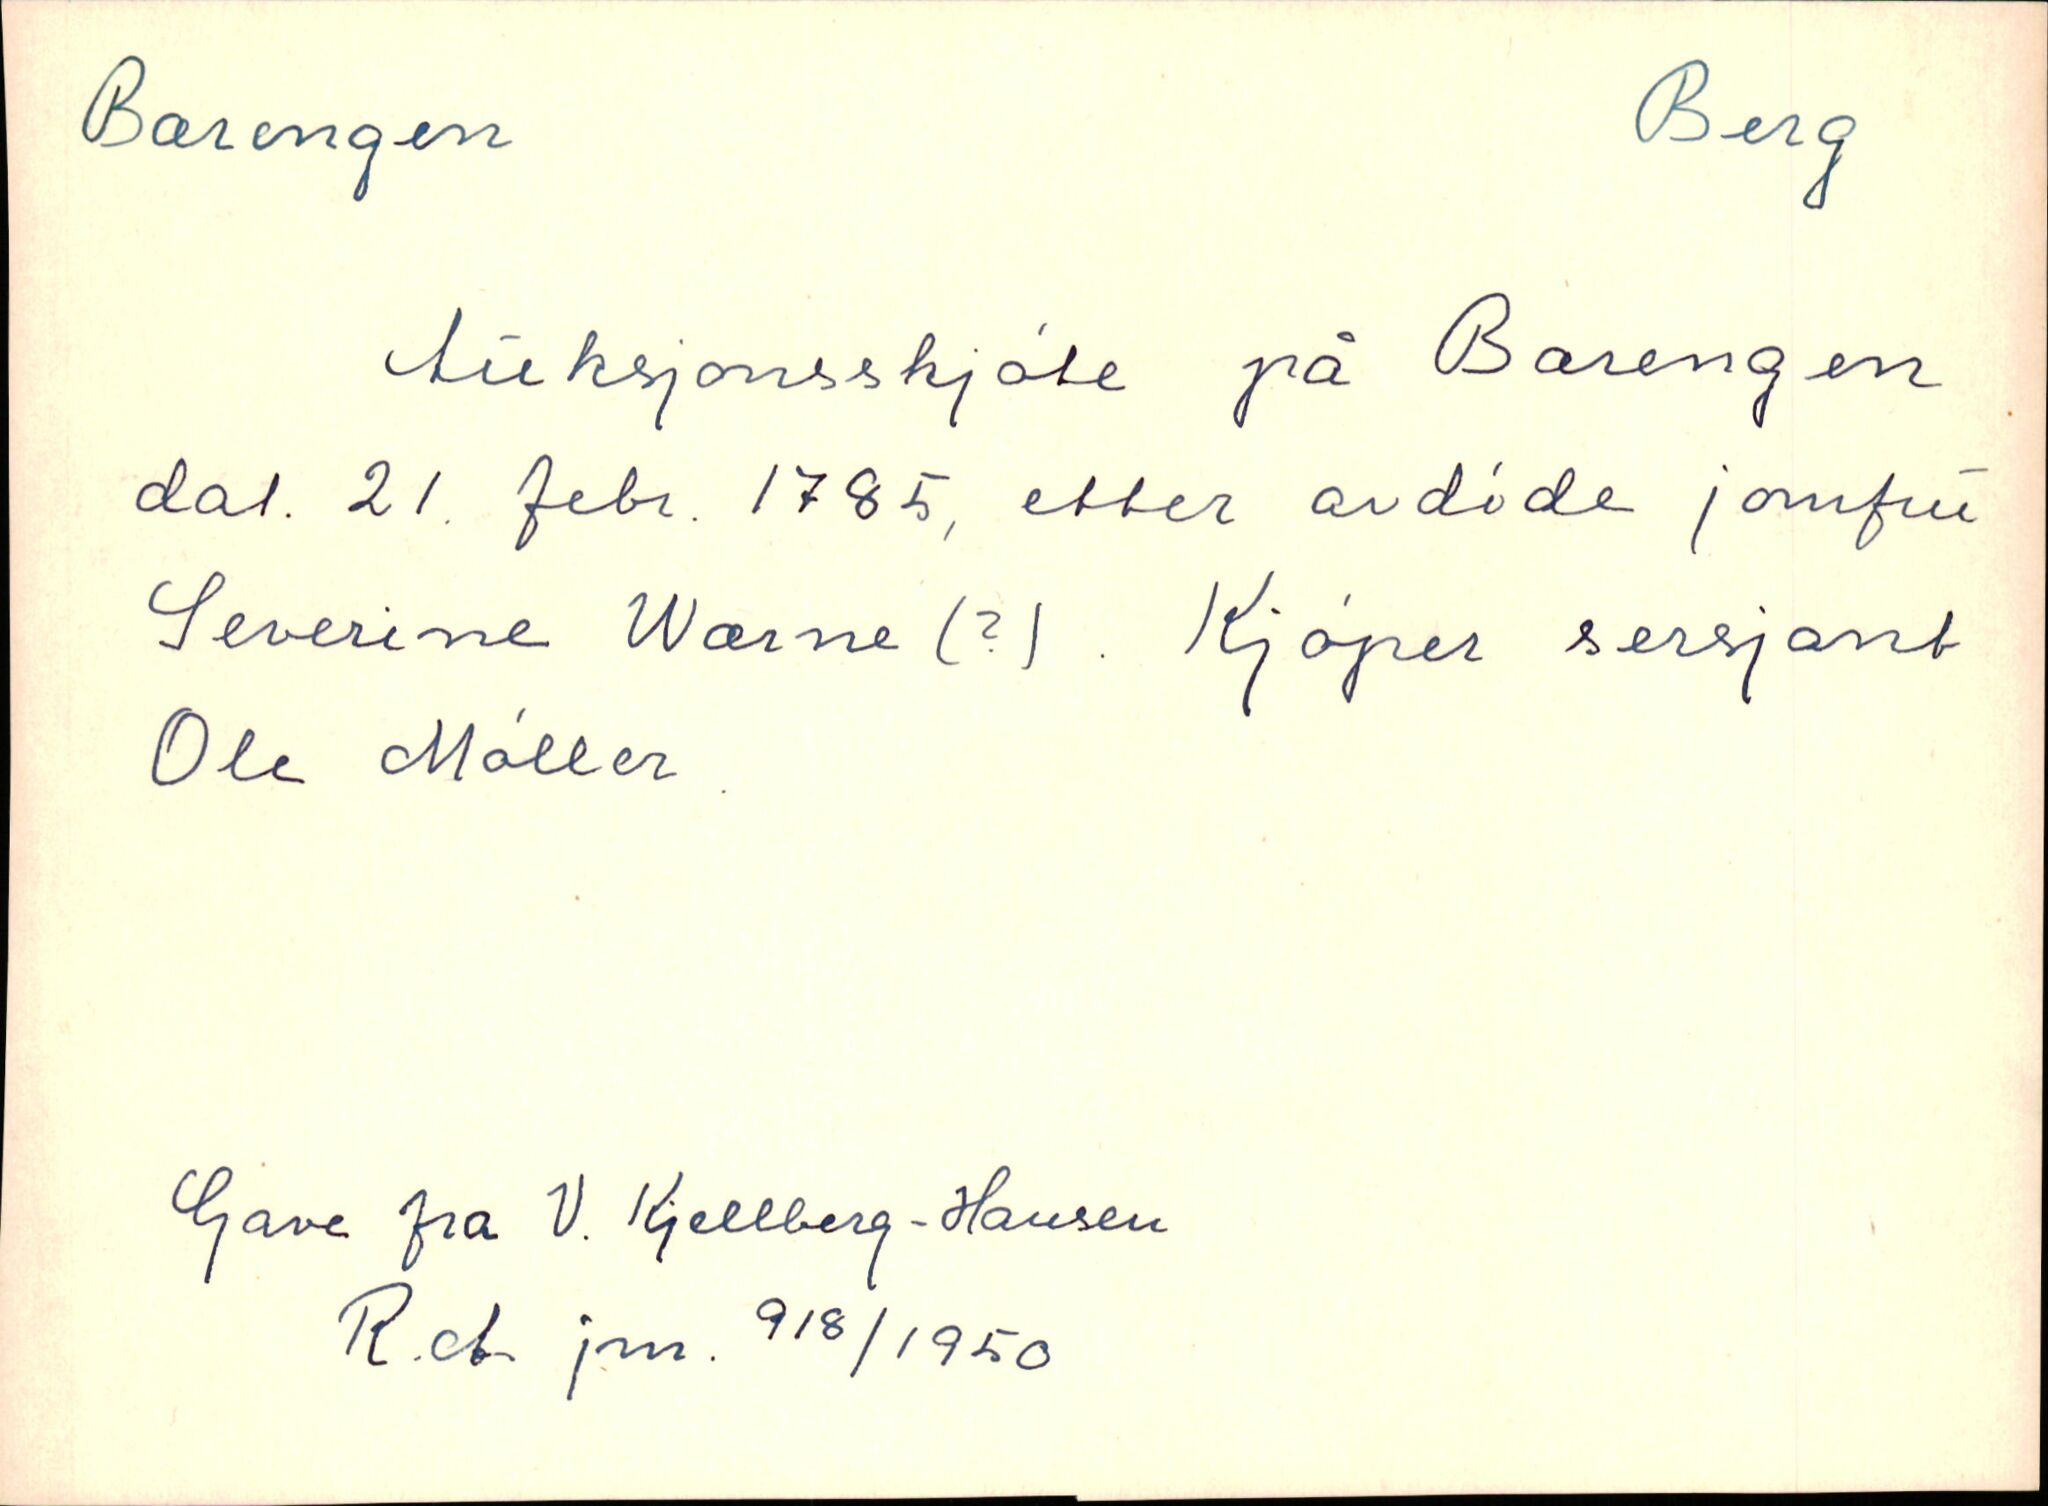 Bærengen Berg
Auksjonsskjøte på Bærengen
dat. 21. febr. 1785, etter avdøde jomfru
Severine Wærne (?). Kjøper sersjant
Ole Møller.
Gave fra V. Kjellberg-Hansen
R.A. jnr. 918/1950